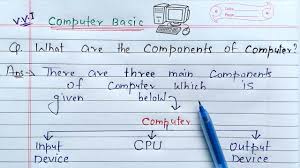 V.V.I Computer Basic
Q. What are the Components of Computer?
Ans→ There are three main Components
of Computer which is
given below
Computer
Input CPU Output
Device Device